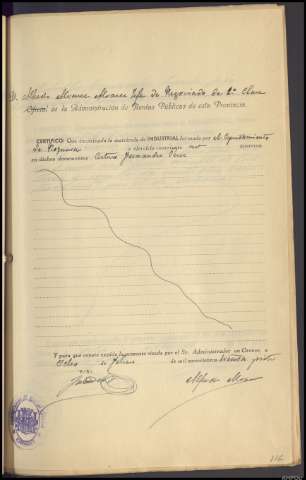 D. Alfredo Alvarez Alvarez Jefe de Negociado de 2ª Clase
Oficial de la Administración de Rentas Públicas de esta Provincia.
CERTIFICO: Que examinada la matrícula de INDUSTRIAL formada por el Ayuntamiento
de y ejercicio corriente no aparece
en dichos documentos Arturo Fernandez Pérez
Y para que conste expido la presente visada por el Sr. Administrador en Cáceres, a
de de mil novecientos treinta y
V.º B.º
Alfredo Alvarez
116